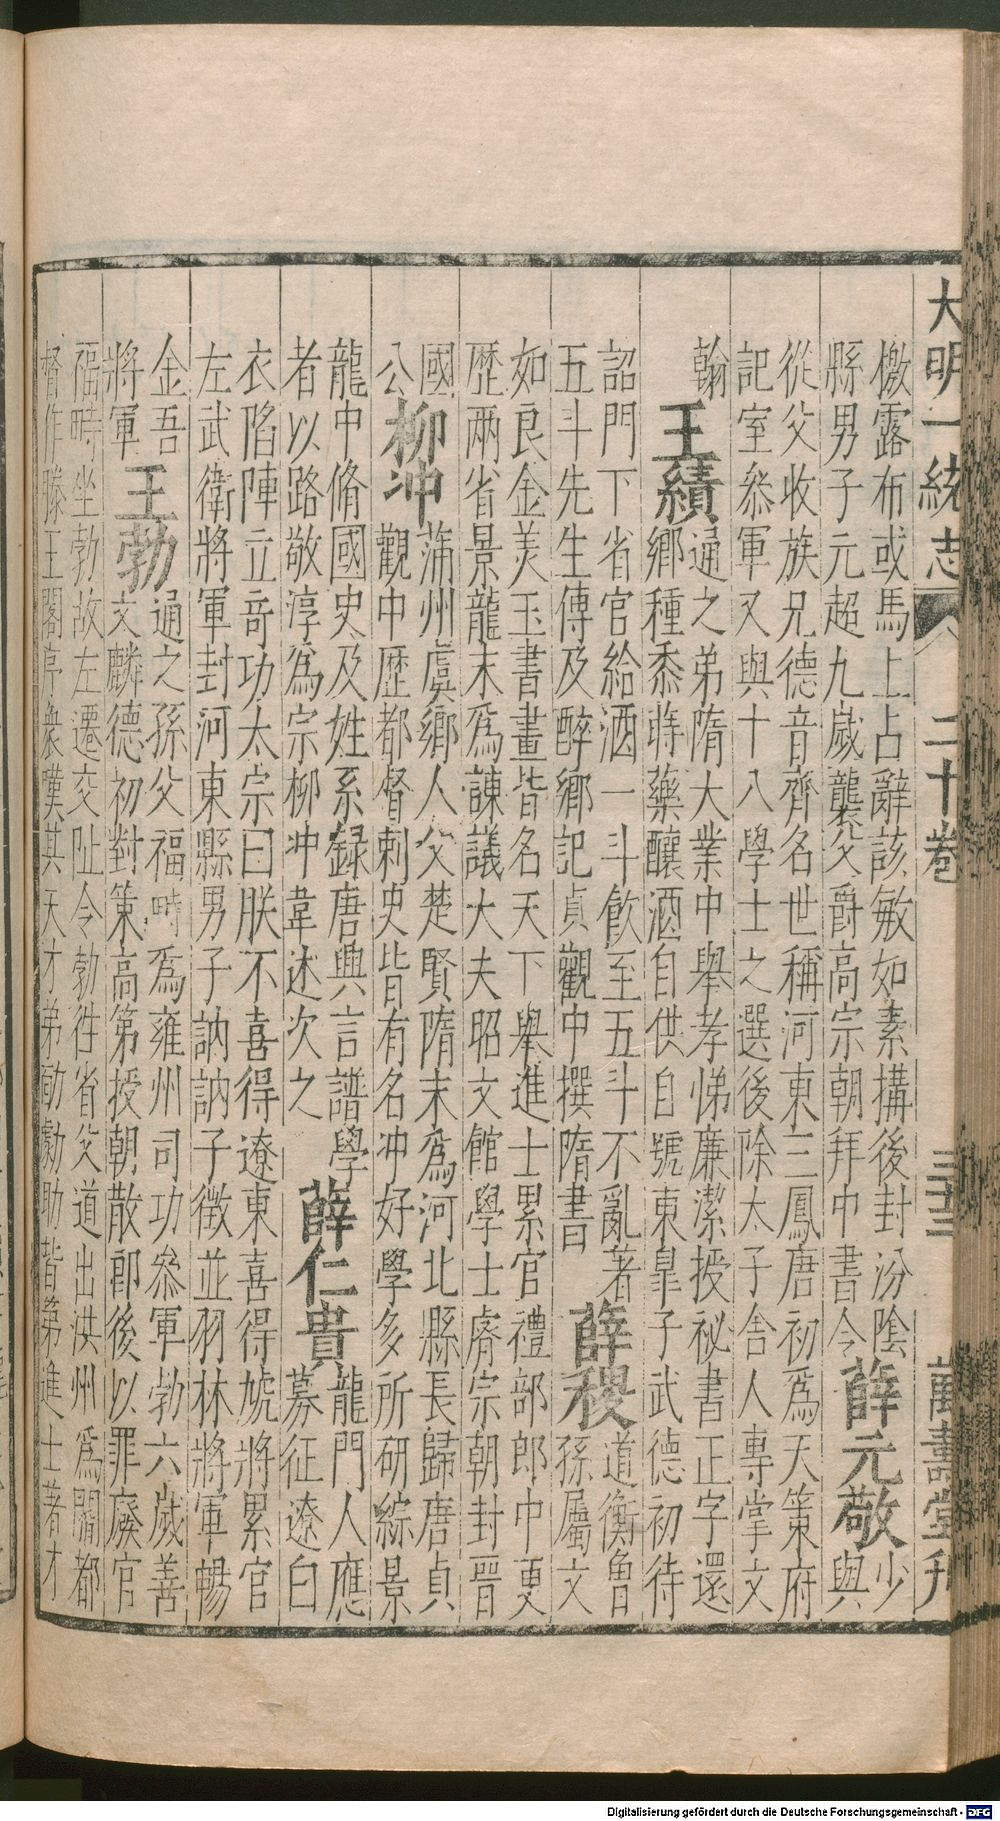 大明一統志 二十卷 三十三 萬壽堂刊
檄露布或馬上占辭該敏如素搆後封汾陰
縣男子元超九歲襲父爵高宗朝拜中書令薛元敬少與
從父收族兄德音齊名世稱河東三鳳唐初爲天策府
記室叅軍又與十八學士之選後除太子舍人專掌文
翰王績通之弟隋大業中舉孝悌廉潔授祕書正字還
鄉種黍蒔藥釀酒自供自號東臯子武德初待
詔門下省官給酒一斗飲至五斗不亂著
五斗先生傳及醉鄉記貞觀中撰隋書薛稷道衡曾
孫屬文
如良金美玉書畫皆名天下舉進士累官禮部郎中更
歷兩省景龍末爲諫議大夫昭文館學士睿宗朝封晉
國
公柳冲蒲州虞鄉人父楚賢隋末爲河北縣長歸唐貞
觀中歷都督剌史皆有名冲好學多所研綜景
龍中脩國史及姓系録唐興言譜學
者以路敬淳爲宗柳冲韋述次之薛仁貴龍門人應
募征遼白
衣陷陣立竒功太宗曰朕不喜得遼東喜得虓將累官
左武衛將軍封河東縣男子訥訥子徵並羽林將軍暢
金吾
將軍王勃通之孫父福畤爲雍州司功叅軍勃六歲善
文麟德初對策高第授朝散郎後以罪廢官
福畤坐勃故左遷交阯令勃徃省父道出洪州爲閻都
督作滕王閣亭衆嘆其天才弟勔勮助皆第進士著才